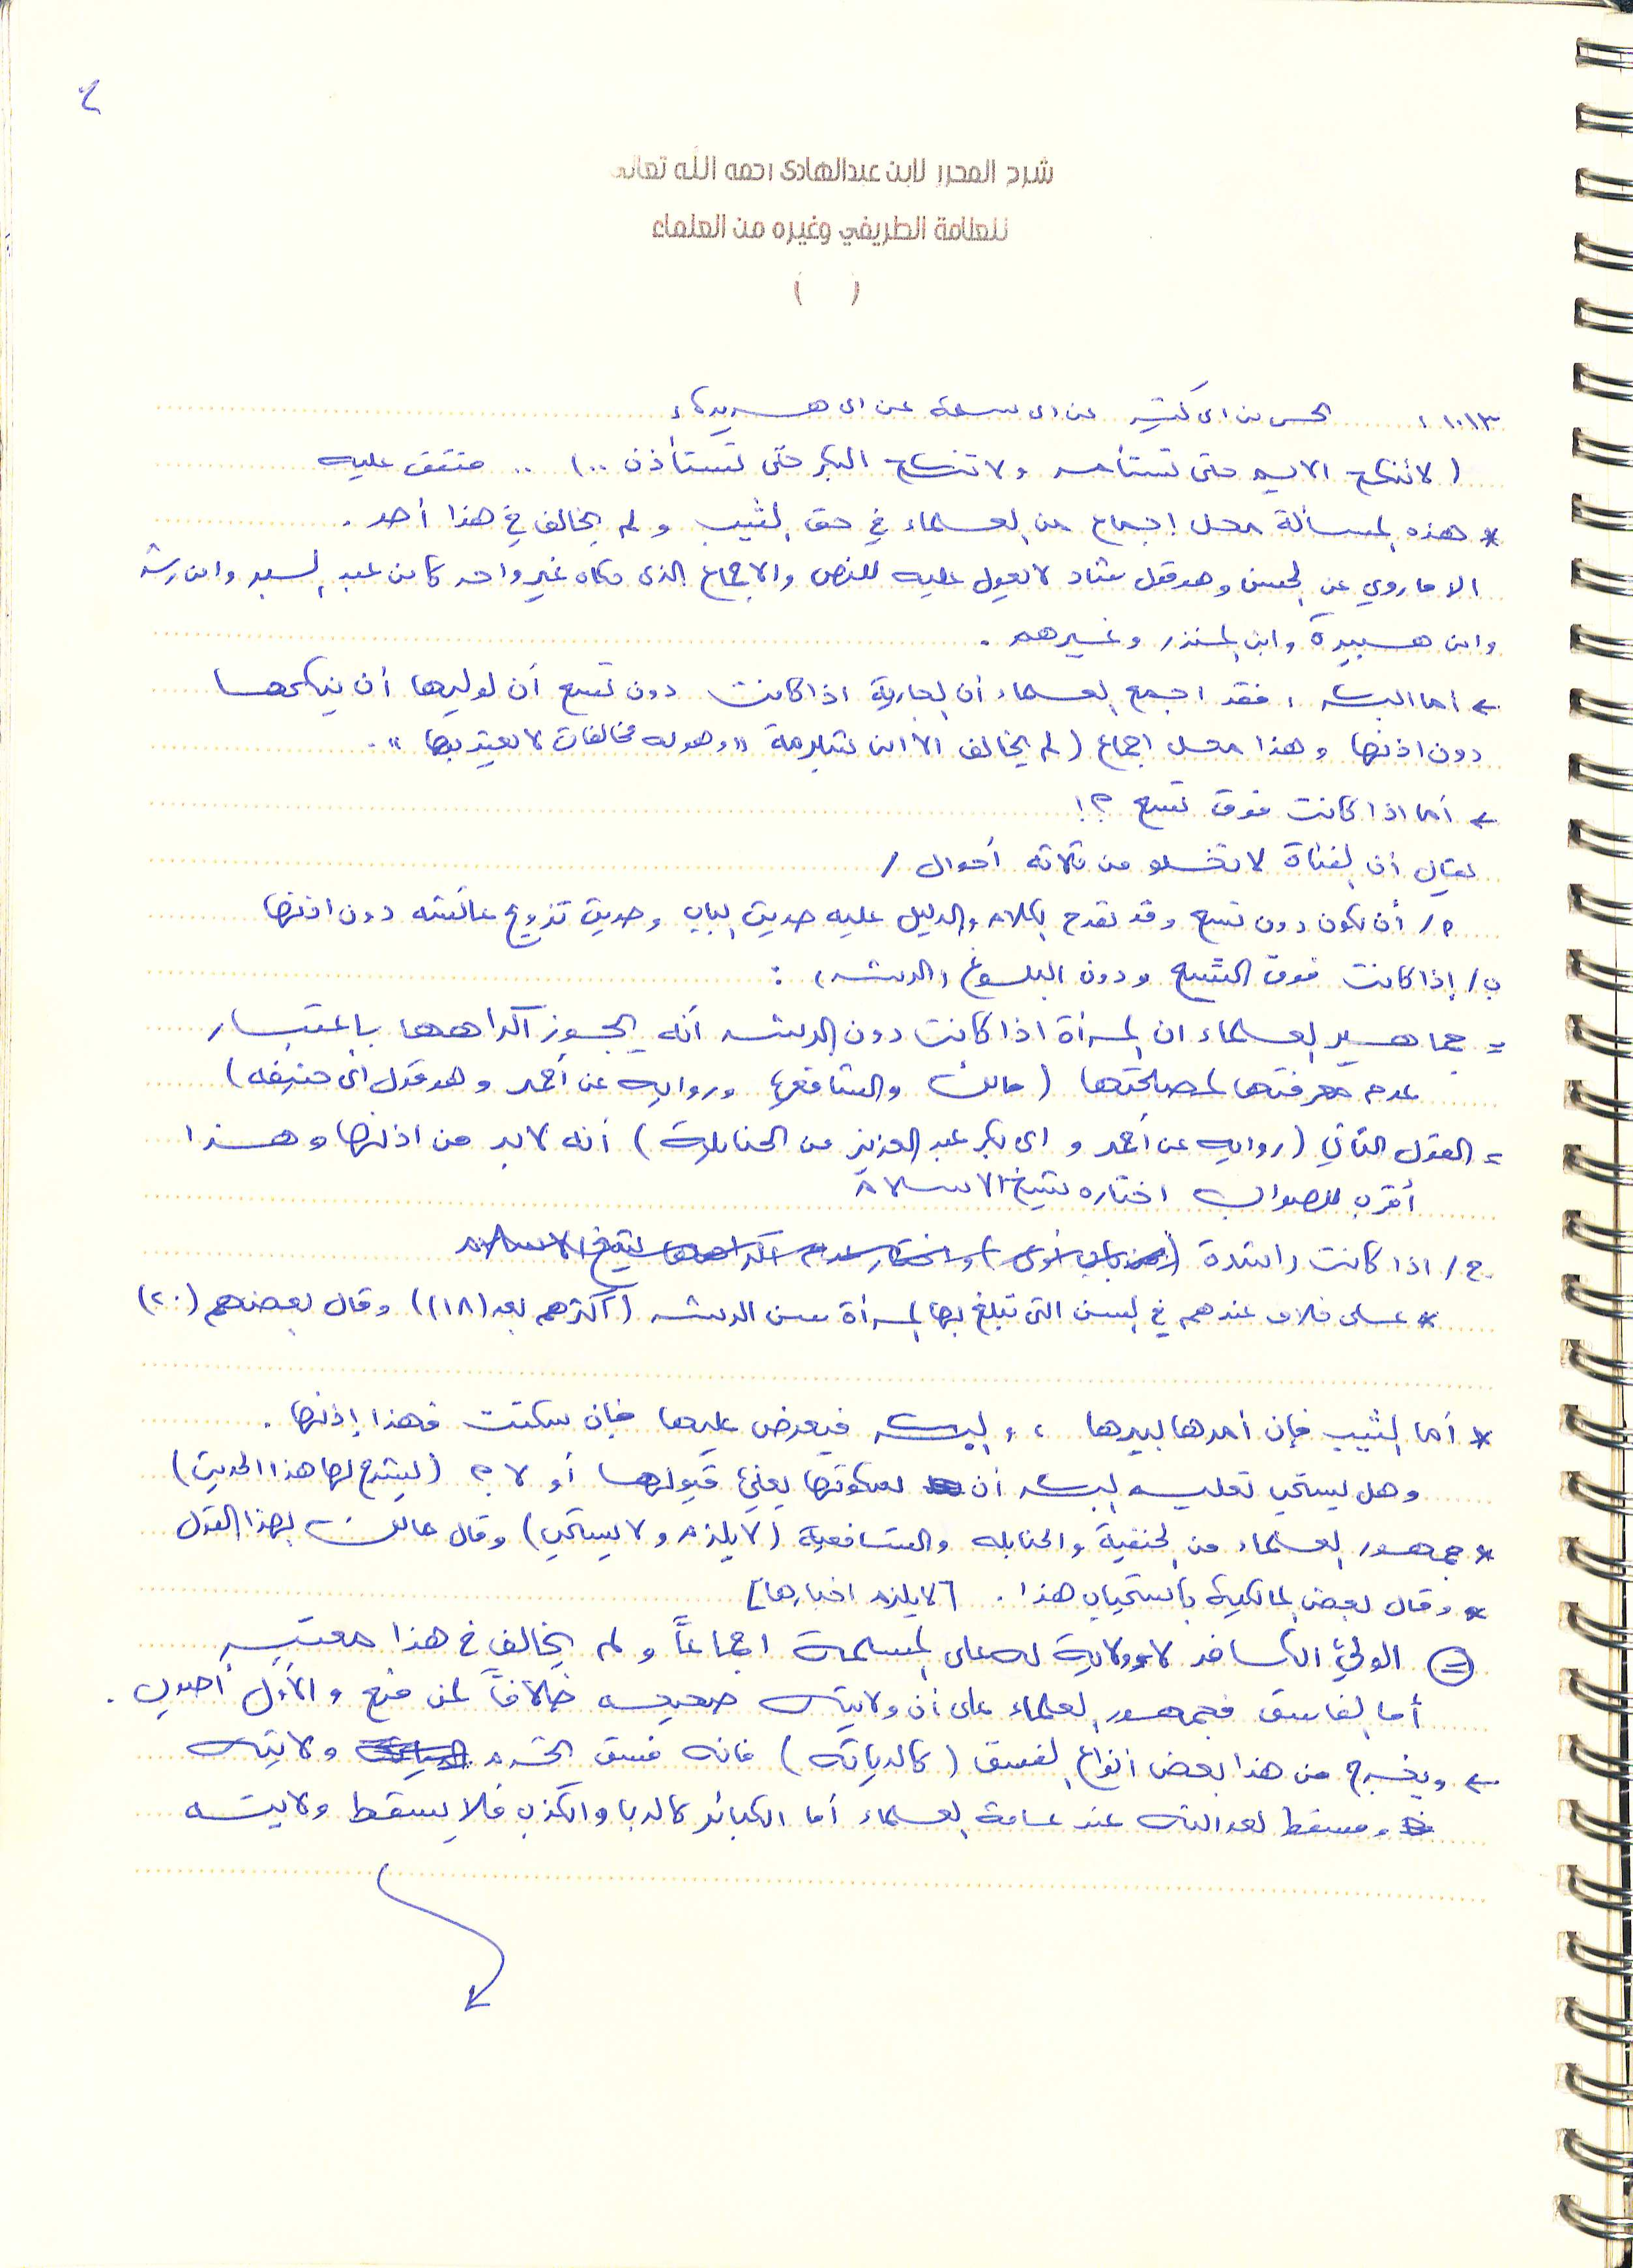 ٤
شرح المحرر لابن عبدالهادي رحمه الله تعالى
للعلامة الطريفي وغيره من العلماء
( )
١٠١٣ : بن ابي كثير عن ابي سلمة عن ابي هريرة :
( لا تنكح الايم حتى تستأمر ولا تنكح البكر حتى تستأذن .. ) .. متفق عليه
* هذه المسألة محل إجماع من العلماء في حق الثيب ولم يخالف في هذا أحد .
الا ما روي عن الحسن وهو قول شاذ لا يعول عليه للنص والاجماع الذي حكاه غير واحد كابن عبد البر وابن رشد
وابن هبيرة وابن المنذر وغيرهم .
← أما البكر ، فقد اجمع العلماء أن الجارية اذا كانت دون تسع أن لوليها أن ينكحها
دون اذنها وهذا محل اجماع ( لم يخالف الا ابن شبرمة "وهو له مخالفات لا يعتد بها" .
← أما اذا كانت فوق تسع ؟!
يقال أن الفتاة لا تخلو من ثلاثة أحوال /
أ / أن تكون دون تسع وقد تقدم الكلام والدليل عليه حديث الباب وحديث تزويج عائشة دون اذنها
ب / إذا كانت فوق التسع ودون البلوغ والرشد :
= جماهير العلماء ان المرأة اذا كانت دون الرشد أنه يجوز اكراهها باعتبار
عدم معرفتها لمصلحتها ( مالك والشافعي ورواية عن أحمد وهو قول أبي حنيفة )
= القول الثاني ( رواية عن أحمد و ابي بكر عبد العزيز من الحنابلة ) أنه لابد من اذنها وهذا
أقرب للصواب اختاره شيخ الاسلام
ج / اذا كانت راشدة ( فمن باب أولى ) واختار عدم اكراهها شيخ الاسلام
* على خلاف عندهم في السن التي تبلغ بها المرأة سن الرشد ( أكثرهم بعد (١٨) ) وقال بعضهم (٢٠)
* أما الثيب فإن أمرها بيدها ، والبكر فيعرض عليها فإن سكتت فهذا إذنها .
وهل يستحب تعليم البكر أن سكوتها يعني قبولها أو لا ؟ ( ليشرح لها هذا الحديث )
* جمهور العلماء من الحنفية والحنابلة والشافعية ( لا يلزم ولا يستحب ) وقال مالك بهذا القول
* وقال بعض المالكية باستحباب هذا . [ لا يلزم اخبارها ]
= الولي الكافر لا ولاية له على المسلمة اجماعاً ولم يخالف في هذا معتبر
أما الفاسق فجمهور العلماء على أن ولايته صحيحه خلافاً لمن منع والأول أصوب .
← ويخرج من هذا بعض أنواع الفسق ( كالدياثه ) فانه فسق ولايته
ومسقط لعدالته عند عامة العلماء أما الكبائر كالربا والكذب فلا يسقط ولايته